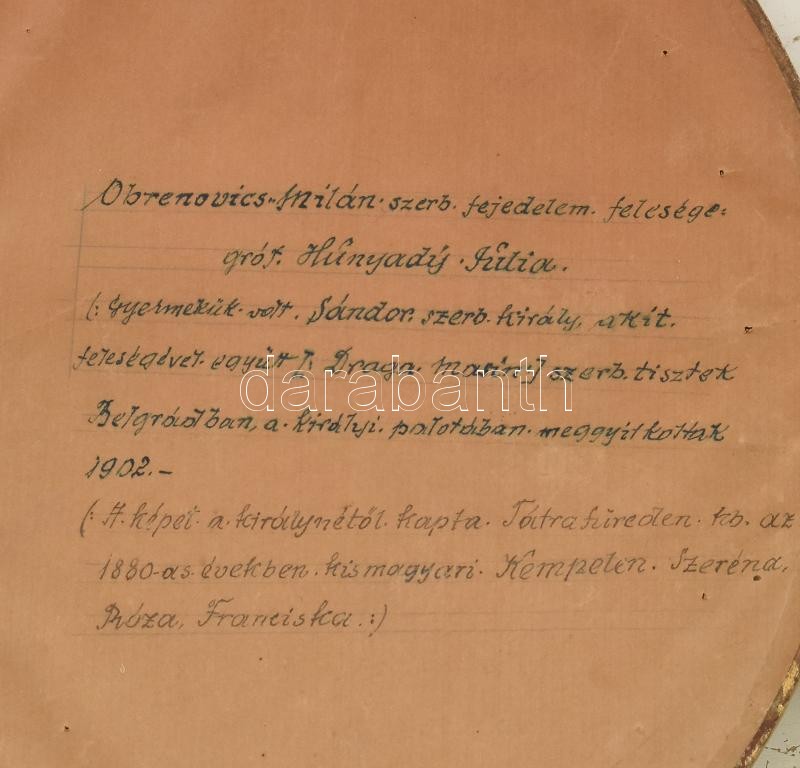 Obrenovics-Milán. szerb. fejedelem. felesége.
gróf. Hunyady. Júlia.
(: Gyermekük. volt. Sándor. szerb. király, akit.
feleségével. együtt (: Draga. Masin:) szerb. tisztek
darabanth
Belgrádban, a. királyi. palotában. meggyilkoltak
1902.-
(: A. képet. a. királynétól. kapta. Tátrafüreden. kb. az
1880-as. években. kismagyari. Kempelen. Szeréna,
Róza, Franciska. :)